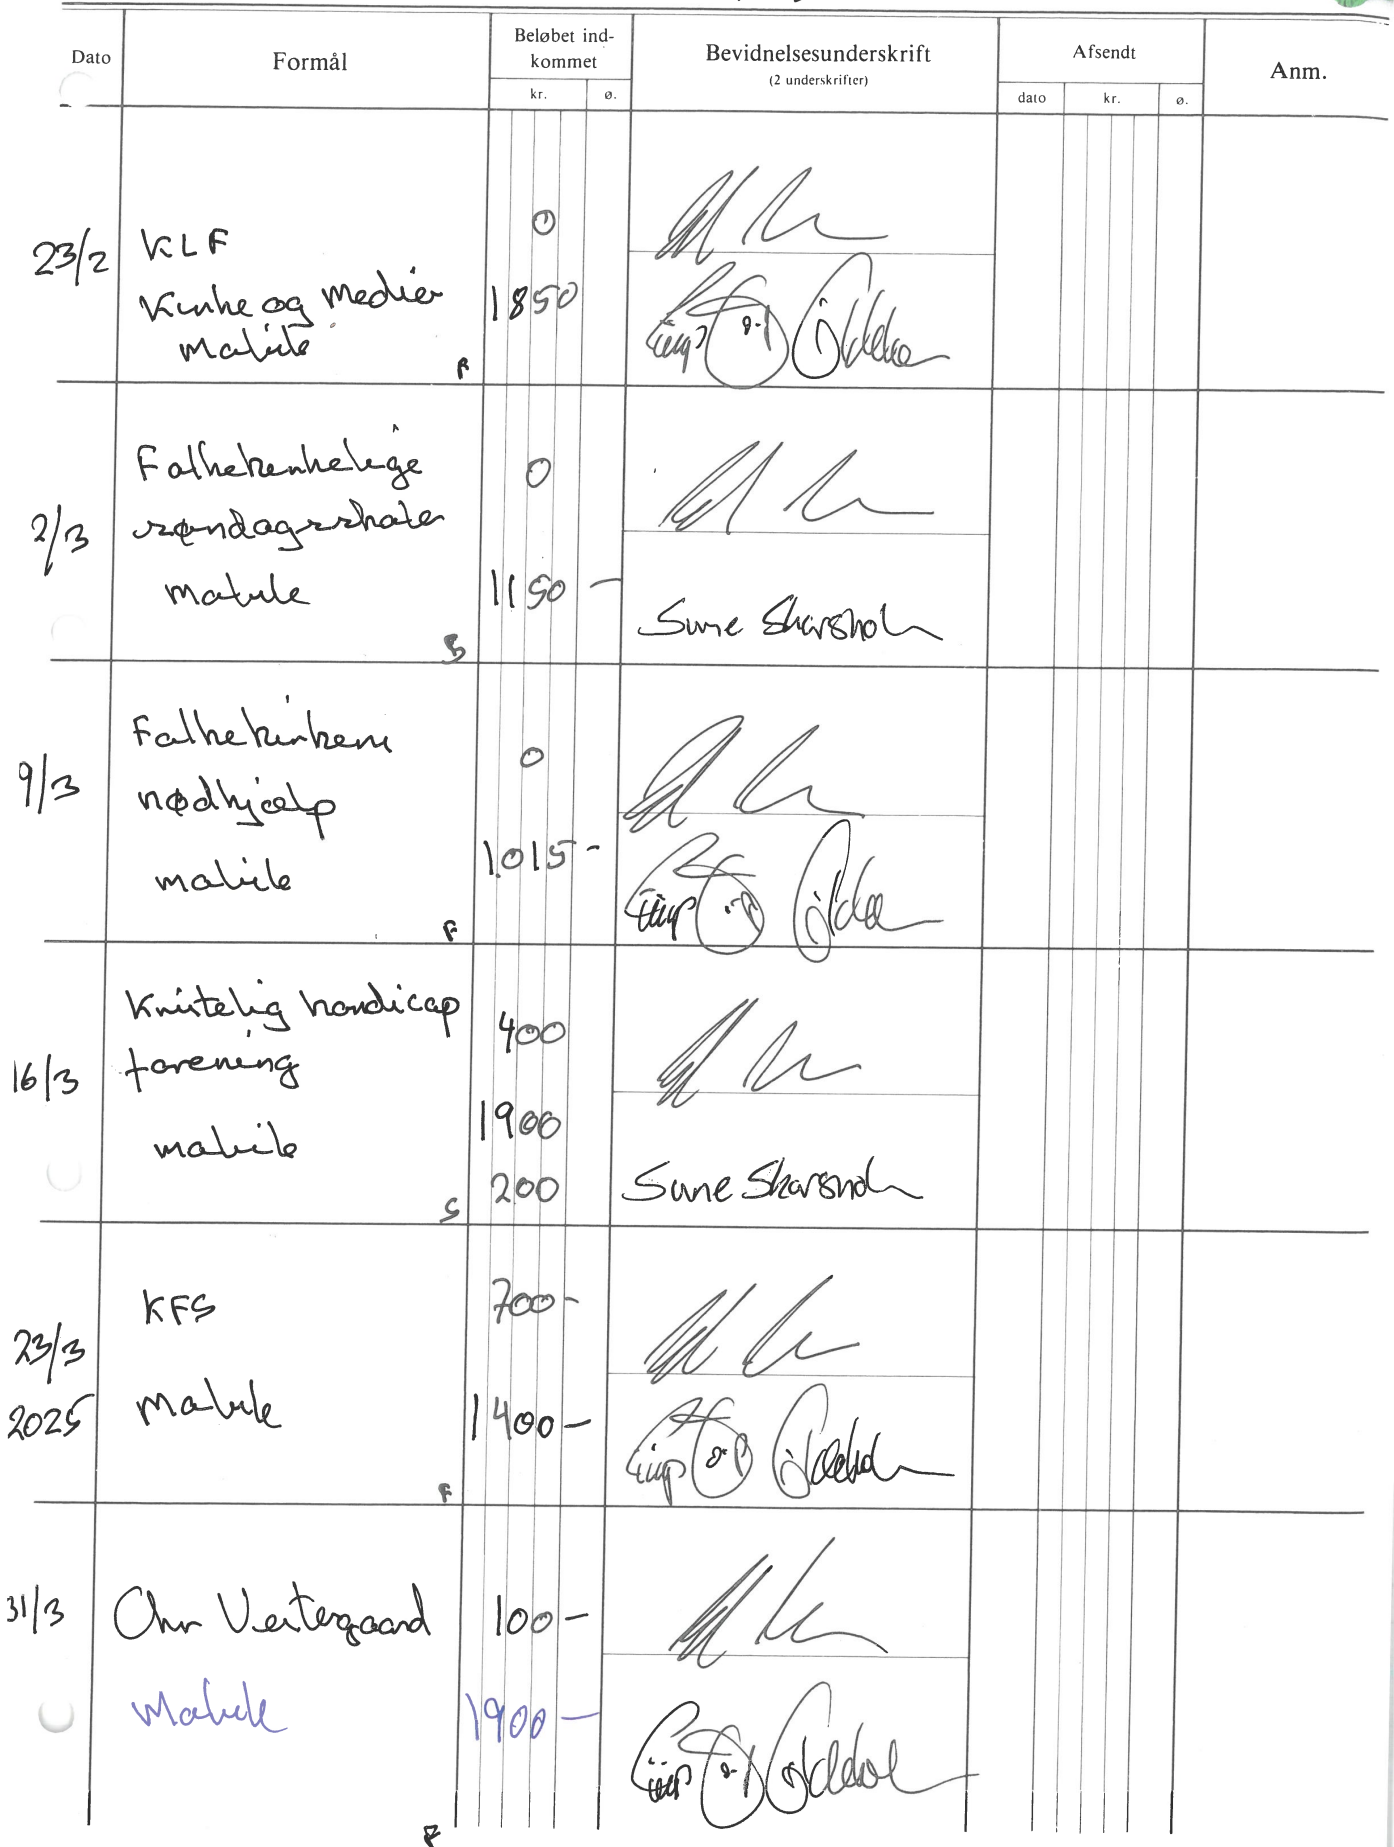 Dato Formål Beløbet ind-
kommet Bevidnelsesunderskrift
(2 underskrifter) Afsendt Anm.
kr. ø. dato kr. ø.
23/2 KLF 0
Kirke og Medier 1850
mobile
2/3 Folkekirkelige 0
søndagsskoler
mobile 1150 -
Sune Skarsholm
9/3 Folkekirkens 0
nødhjælp
mobile 1.015 -
F
16/3 Kristelig handicap 400
forening
mobile 1900
200 Sune Skarsholm
S
23/3 KFS 700 -
2025 Mobile 1400 -
F
31/3 Chr Vestergaard 100 -
Mobile 1900 -